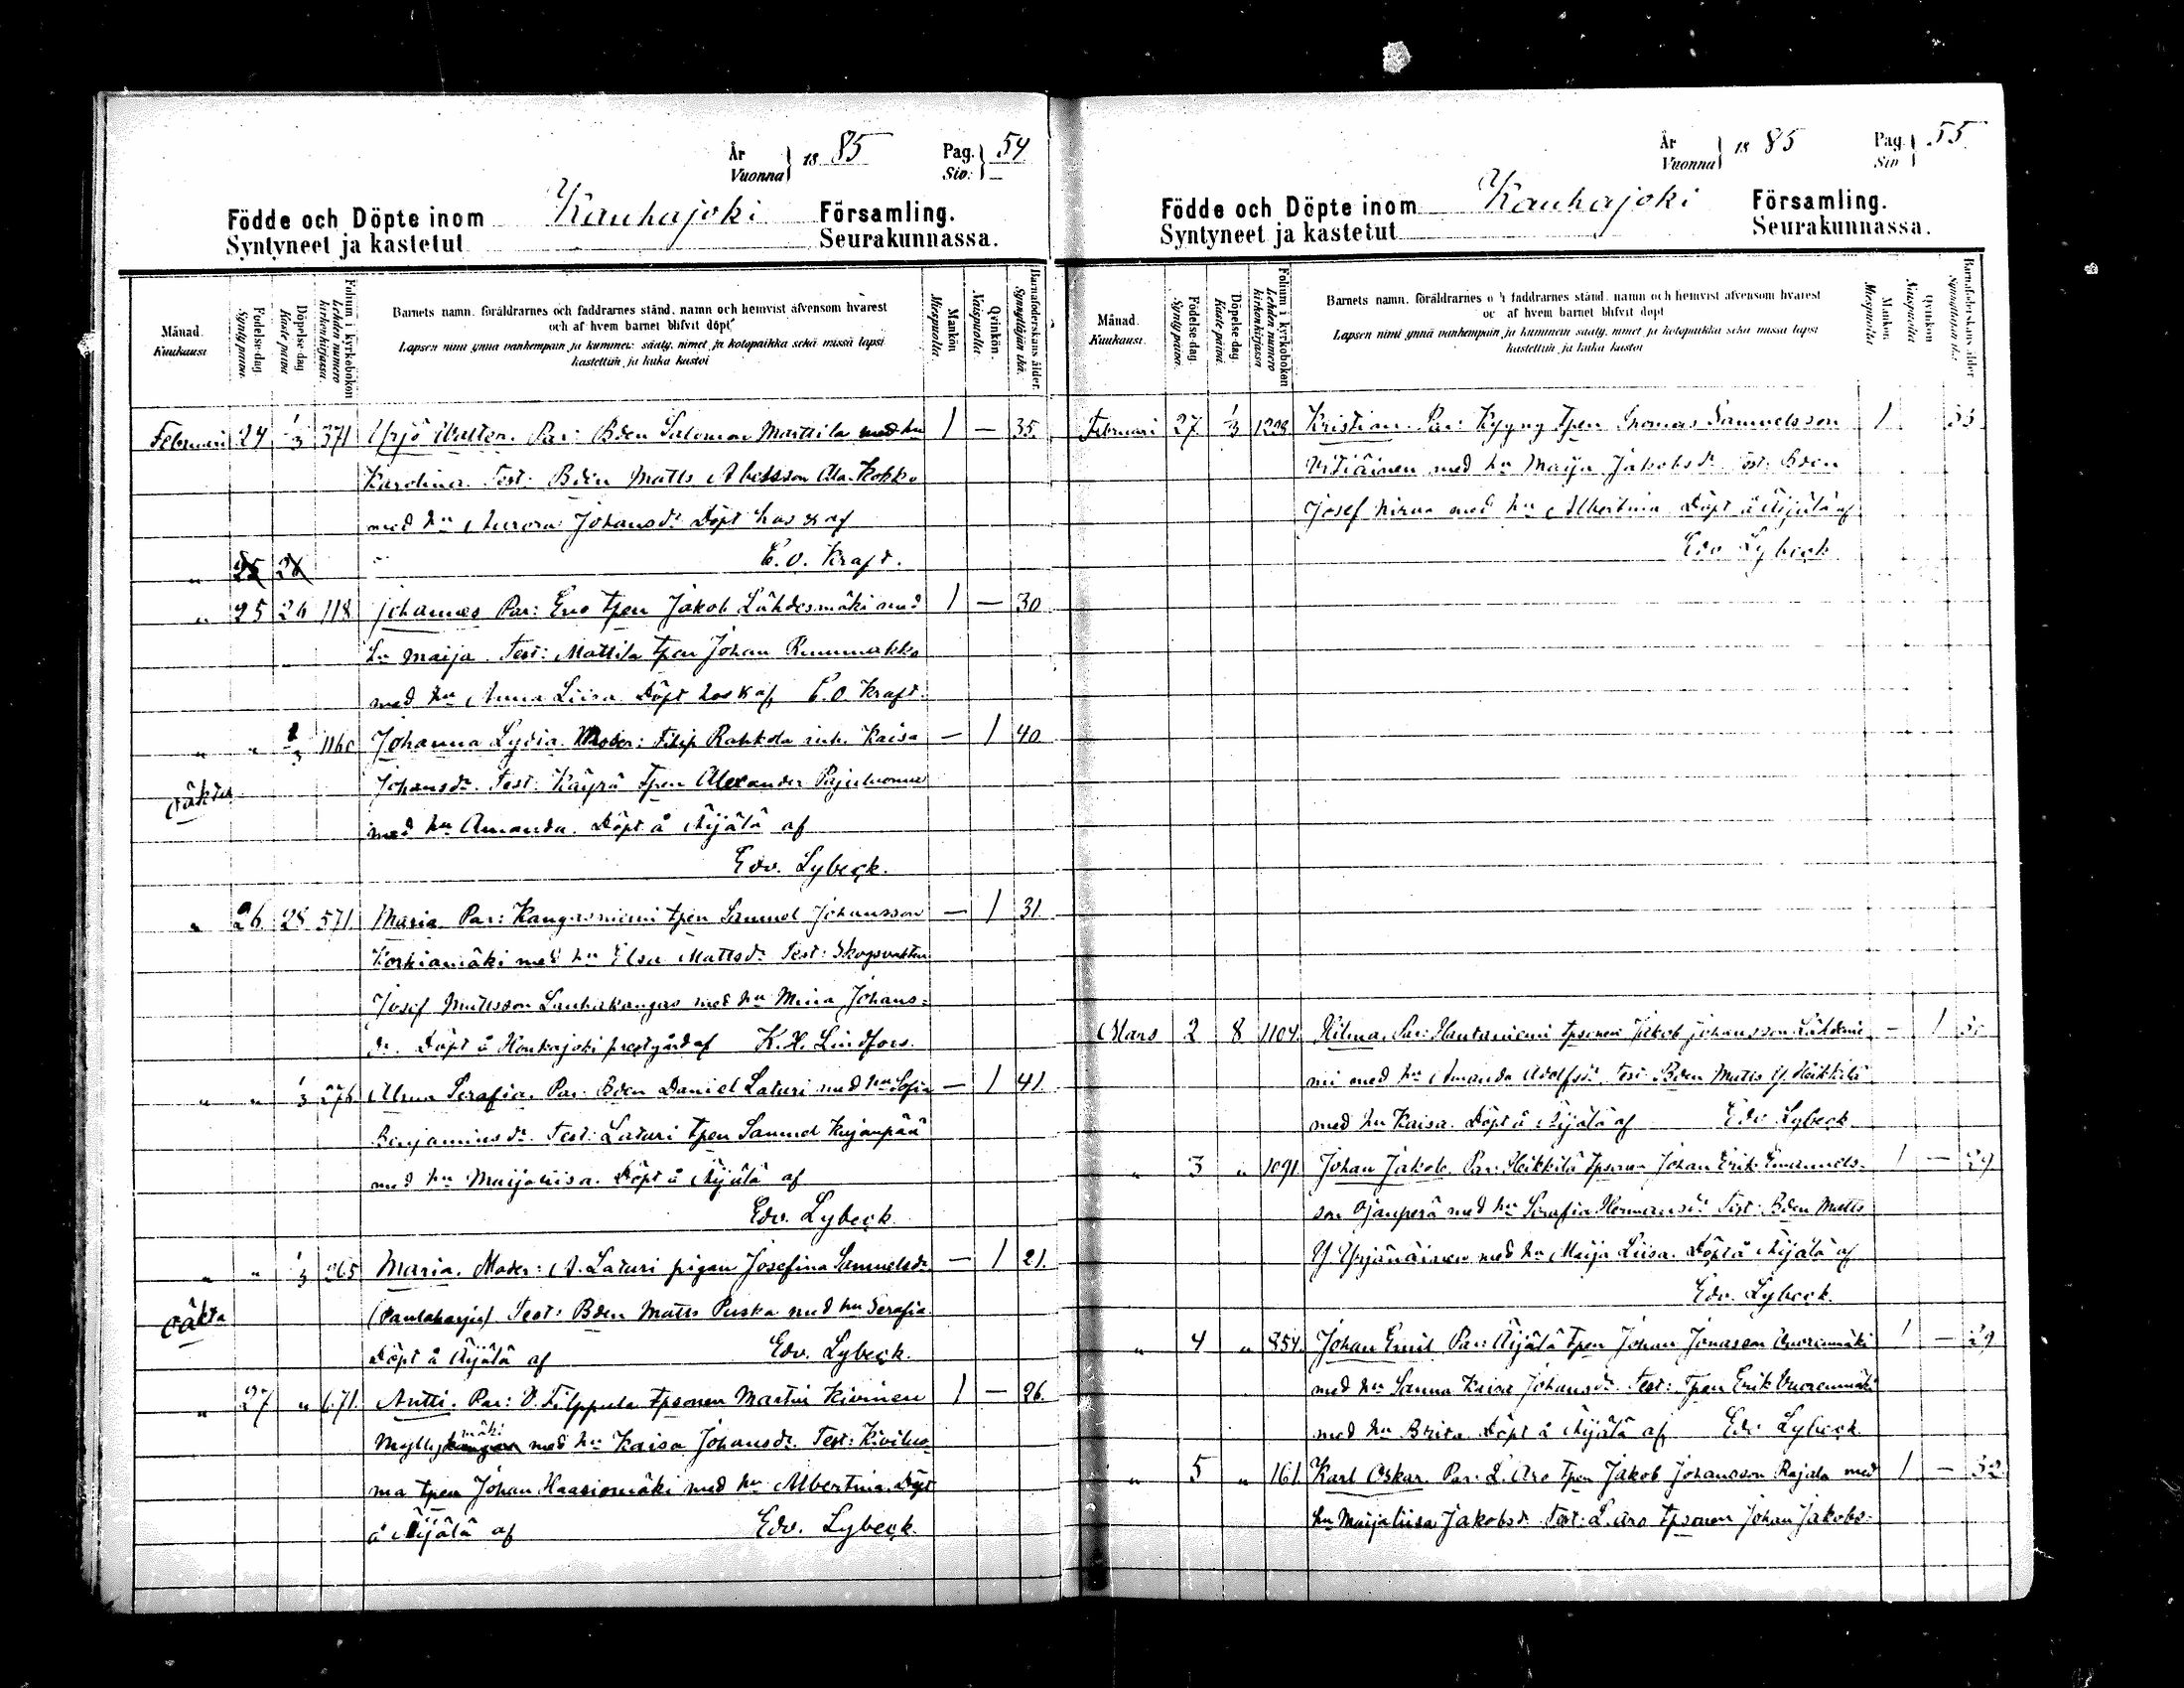 År
Vuonna 1885 Pag. Siv: 54
Födde och Döpte inom Kauhajoki Församling.
Syntyneet ja kastetut Seurakunnassa.
Månad. Kuukausi
Födelse-dag. Synty päivä.
Döpelse-dag Kaste päivä
Folium i kyrkoboken Lehden numero kirkonkirjassa.
Barnets namn, föräldrarnes och faddrarnes stånd, namn och hemvist äfvensom hvarest
och af hvem barnet blifvit döpt
Lapsen nimi ynnä vanhempain ja kummein sääty, nimet ja kotopaikka sekä missä lapsi
kastettiin ja kuka kastoi
Mankön Miespuolia
Qvinkön. Naispuolia.
Barnaföderskans ålder. Synnyttäjän ikä.
Februari 24 1/3 371 Yrjö Walter. Par: Bden Salomon Marttila med hu 1 — 35.
Karolina. Test: Bden Matts Abelsson Ala-Kokko
med hu Aurora Johansdr Döpt hos K af
" 25 26 E. O. Kraft.
" 25 26 118 Johannes Par: Eno tpen Jakob Lähdesmäki med 1 — 30
hu Maija. Test: Mattila tpen Johan Rummukko
med hu Anna Liisa Döpt hos K af E. O. Kraft.
" " 1/3 1160 Johanna Lydia. Moder: Filip Rahkola inh. Kaisa — 1 40
oäkta Johansdr. Test: Käyrä Tpen Alexander Pajuluoma
med hu Amanda. Döpt å Äijälä af
Edv. Lybeck.
" 26 28 571. Maria. Par: Kangasniemi tpen Samuel Johansson — 1 31.
Korkiamäki med hu Elsa Mattsdr Test: Skogsvakten
Josef Mattsson Lauhakangas med hu Mina Johans=
dr. Döpt å Honkajoki prestgård af K. H. Lindfors.
" " 1/3 276 Alma Serafia. Par: Bden Daniel Laturi med hu Sofia — 1 41.
Benjaminsdr. Test: Laturi tpen Samuel Kujanpää
med hu Maijaliisa. Döpt å Äijälä af
Edv. Lybeck.
" " 1/3 265 Maria. Moder: A. Laturi pigan Josefina Samuelsdr — 1 21.
oäkta (Paulaharju) Test: Bden Matts Puska med hu Serafia.
Döpt å Äijälä af Edv. Lybeck.
" 27 " 671. Antti. Par: V. Filppula tpsonen Martin Kivinen 1 — 26.
mäki
Myllykangas med hu Kaisa Johansdr. Test: Kiviluo
ma tpen Johan Haasiomäki med hu Albertina. Döpt
å Äijälä af Edv. Lybeck.
År
Vuonna 1885 Pag. Siv 55
Födde och Döpte inom Kauhajoki Församling.
Syntyneet ja kastetut Seurakunnassa.
Månad. Kuukausi.
Födelse-dag. Synty päivä.
Döpelse-dag. Kaste päivä.
Folium i kyrkoboken Lehden numero kirkonkirjassa
Barnets namn, föräldrarnes och faddrarnes stånd, namn och hemvist äfvensom hvarest
oc af hvem barnet blifvit döpt
Lapsen nimi ynnä vanhempain ja kummein sääty, nimet ja kotopaikka sekä missä lapsi
kastettiin ja kuka kastoi
Mankön Miespuolia
Qvinkön Naispuolia
Barnaföderskans ålder Synnyttäjän ikä
Februari 27. 1/3 1228 Kristian. Par: Kyyny tpen Thomas Samuelsson 1 33
med hu Maija Jakobsdr Test: Bden
Josef Nirva med hu Albertina Döpt å Äijälä af
Edv Lybeck
Mars 2 8 1104. Hilma. Par: Hautaniemi tpsonen Jakob Johansson Lähdenie — 1 30
mi med hu Amanda Adolfsdr. Test: Bden Matts Y. Heikkilä
med hu Kaisa. Döpt å Äijälä af Edv Lybeck
" 3 " 1091. Johan Jakob. Par: Heikkilä tpsonen Johan Erik Emanuels= 1 — 29
son Ojanperä med hu Serafia Hermansdr Test: Bden Matts
Y. Yrjänäinen med hu Maija Liisa. Döpt å Äijälä af
Edv. Lybeck.
" 4 " 854. Johan Emil Par: Äijälä tpen Johan Jonasson Vuorenmäki 1 — 29
med hu Sanna Kaisa Johansdr. Test: Tpen Erik Vuorenmäki
med hu Brita Döpt å Äijälä af Edv Lybeck.
" 5 " 161. Karl Oskar. Par: L. Aro tpen Jakob Johansson Rajala med 1 — 32
hu Maijaliisa Jakobsdr. Test: L. Aro tpsonen Johan Jakobs-